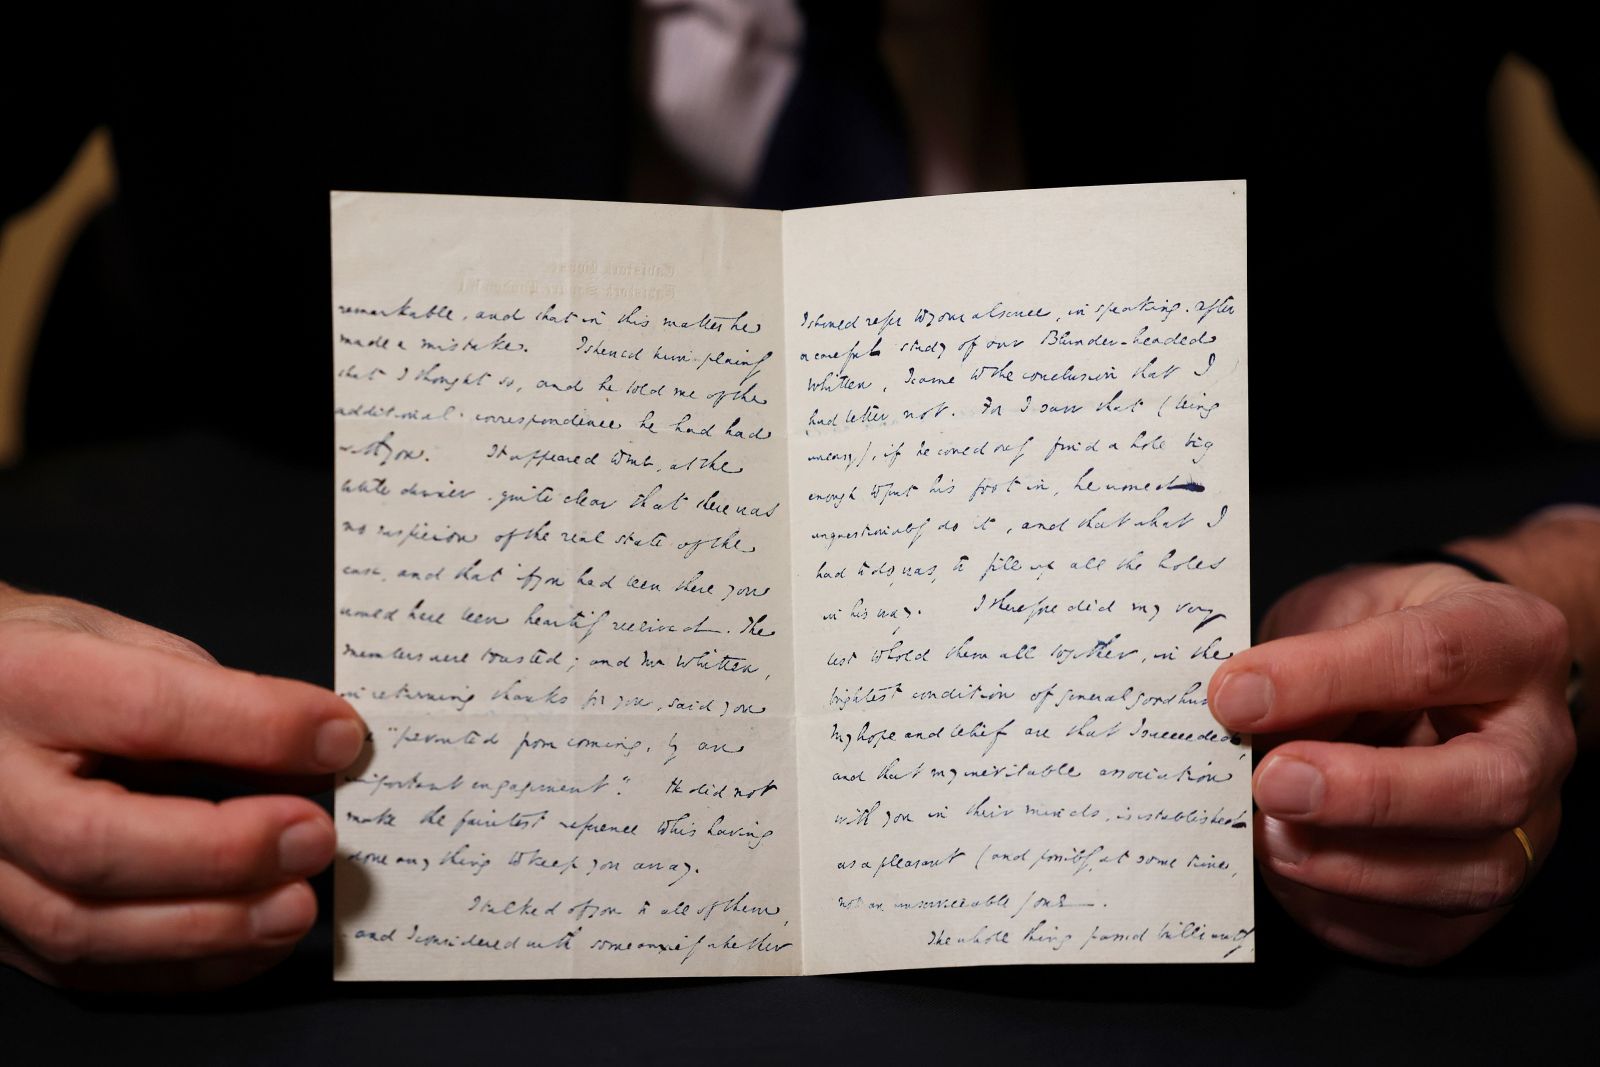 remarkable, and that in this matter he
made a mistake. I shewed him plainly
that I thought so, and he told me of the
additional correspondence he had had
with you. It appeared to me, at the
little dinner, quite clear that there was
no suspicion of the real state of the
case, and that if you had been there you
would have been heartily received. The
members were toasted; and Mr Whitten,
in returning thanks for you, said you
"prevented from coming, by an
important engagement". He did not
make the faintest reference to his having
done any thing to keep you away.
I talked of you to all of them,
and I considered with some anxiety whether
I should refer to your absence, in speaking. After
a careful study of our Blunder-headed
Whitten, I came to the conclusion that I
had better not. For I saw that (being
uneasy), if he could only find a hole big
enough to put his foot in, he would
unquestionably do it, and that what I
had to do was, to fill up all the holes
in his way. I therefore did my very
best to hold them all together, in the
brightest condition of general good
My hope and belief are that I succeeded,
and that my inevitable association
with you in their minds, is established
as a pleasant (and possibly, at some time,
not an unserviceable) one.
The whole thing passed brilliantly